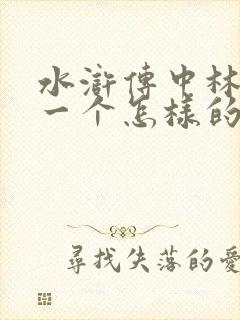 水滸傳中林
一个怎樣的
尋找失落的愛